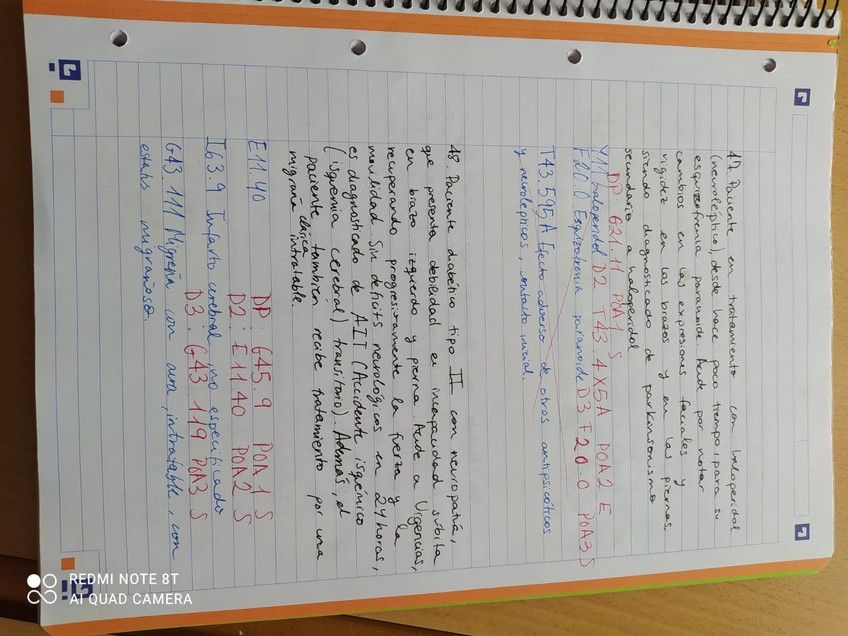 47. Paciente en tratamiento con haloperidol
(neuroléptico), desde hace poco tiempo, para su
esquizofrenia paranoide. Acude por notar
cambios en las expresiones faciales y
rigidez en los brazos y en las piernas,
siendo diagnosticado de parkinsonismo
secundario a haloperidol
DP G21.11 POA1 S
Y11 haloperidol D2 T43.4X5A POA2 E
F20.0 Esquizofrenia paranoide D3 F20.0 POA3 S
T43.595A Efecto adverso de otros antipsicóticos
y neurolépticos, contacto inicial.
48. Paciente diabético tipo II con neuropatía,
que presenta debilidad e incapacidad súbita
en brazo izquierdo y pierna. Acude a Urgencias,
recuperando progresivamente la fuerza y la
movilidad. Sin déficits neurológicos en 24 horas,
es diagnosticado de AIT (Accidente isquémico
(isquemia cerebral) transitorio). Además, el
paciente también recibe tratamiento por una
migraña clásica intratable.
E11.40 DP: G45.9 POA1 S
D2: E11.40 POA2 S
I63.9 Infarto cerebral, no especificado
D3: G43.119 POA3 S
G43.111 Migraña con aura, intratable, con
estatus migrañoso.
REDMI NOTE 8T
AI QUAD CAMERA